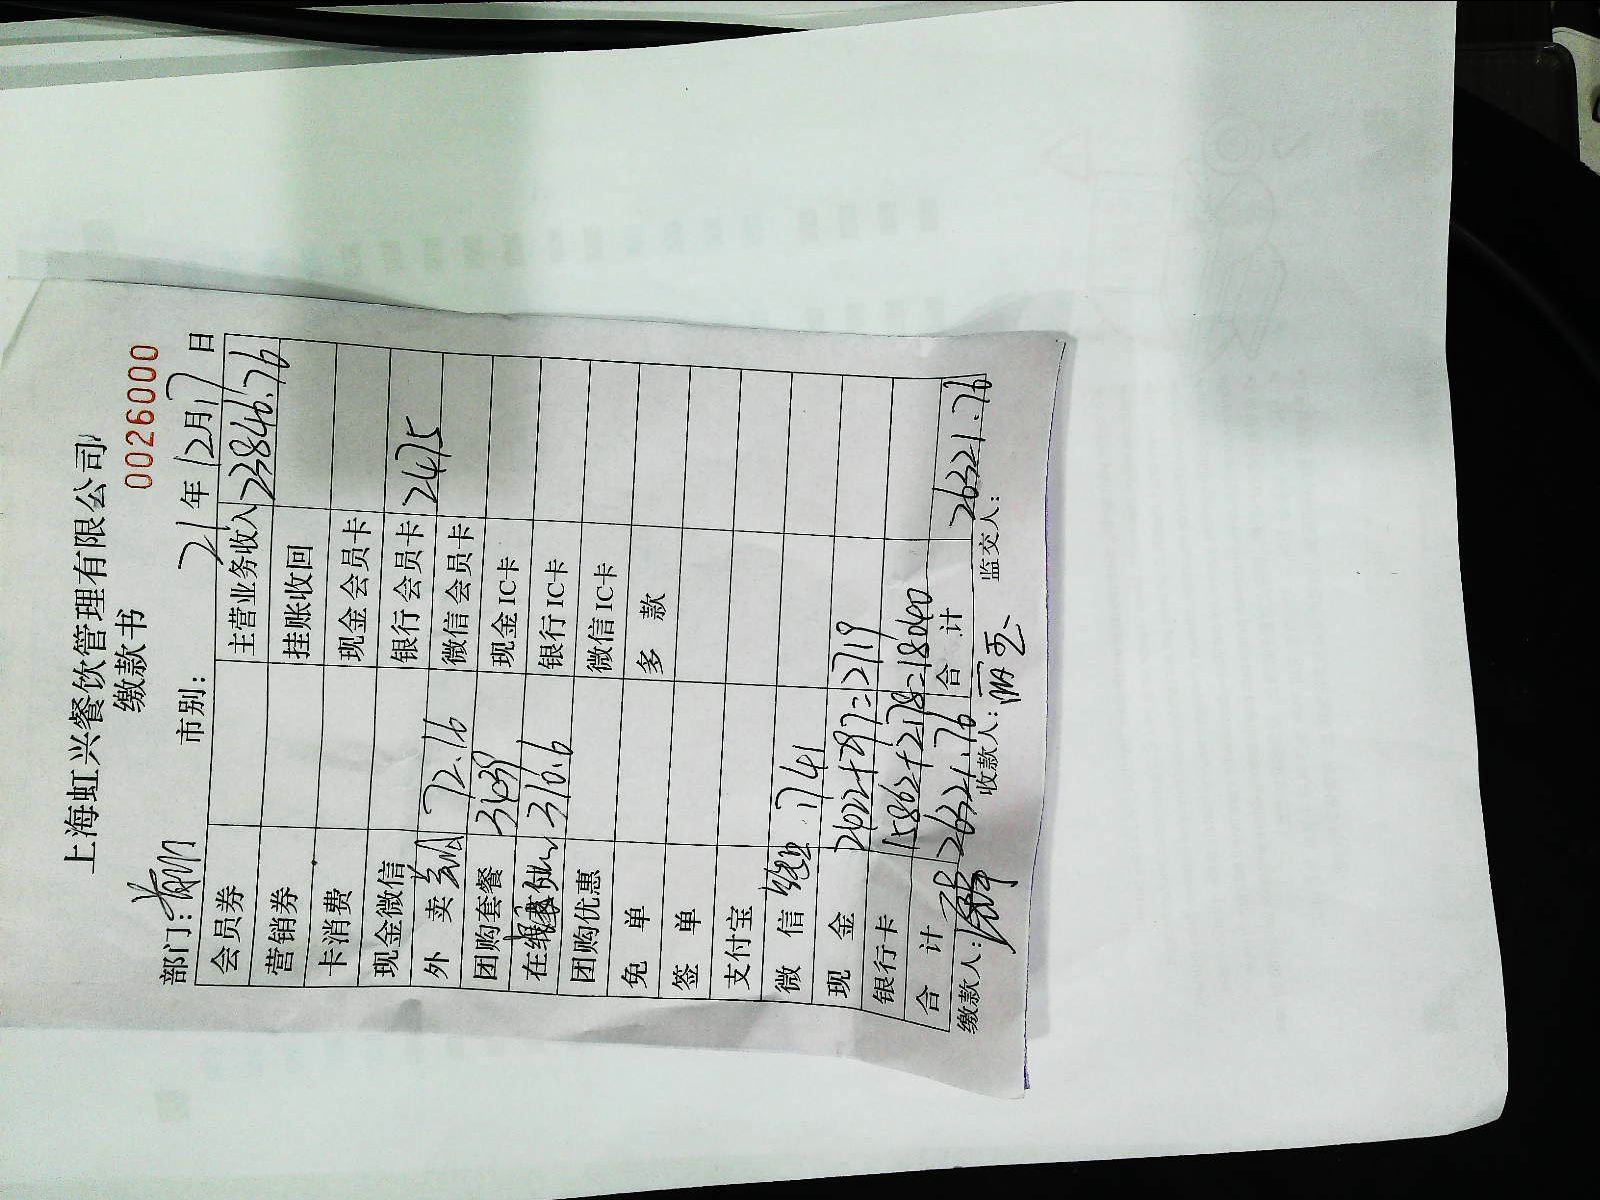 上海虹兴餐饮管理有限公司
缴款书 0026000
部门: 市别: 21年12月17日
会员券 主营业务收入 23846.76
营销券 挂账收回
卡消费 现金会员卡
现金微信 银行会员卡 2475
外卖 72.16 微信会员卡
团购套餐 3439 现金IC卡
在线 310.6 银行IC卡
团购优惠 微信IC卡
免单 多款
签单
支付宝
微信 1741
现金 2622+97=2719
银行卡 15862+2178=18040
合计 26321.76 合计 26321.76
缴款人: 收款人: 监交人: